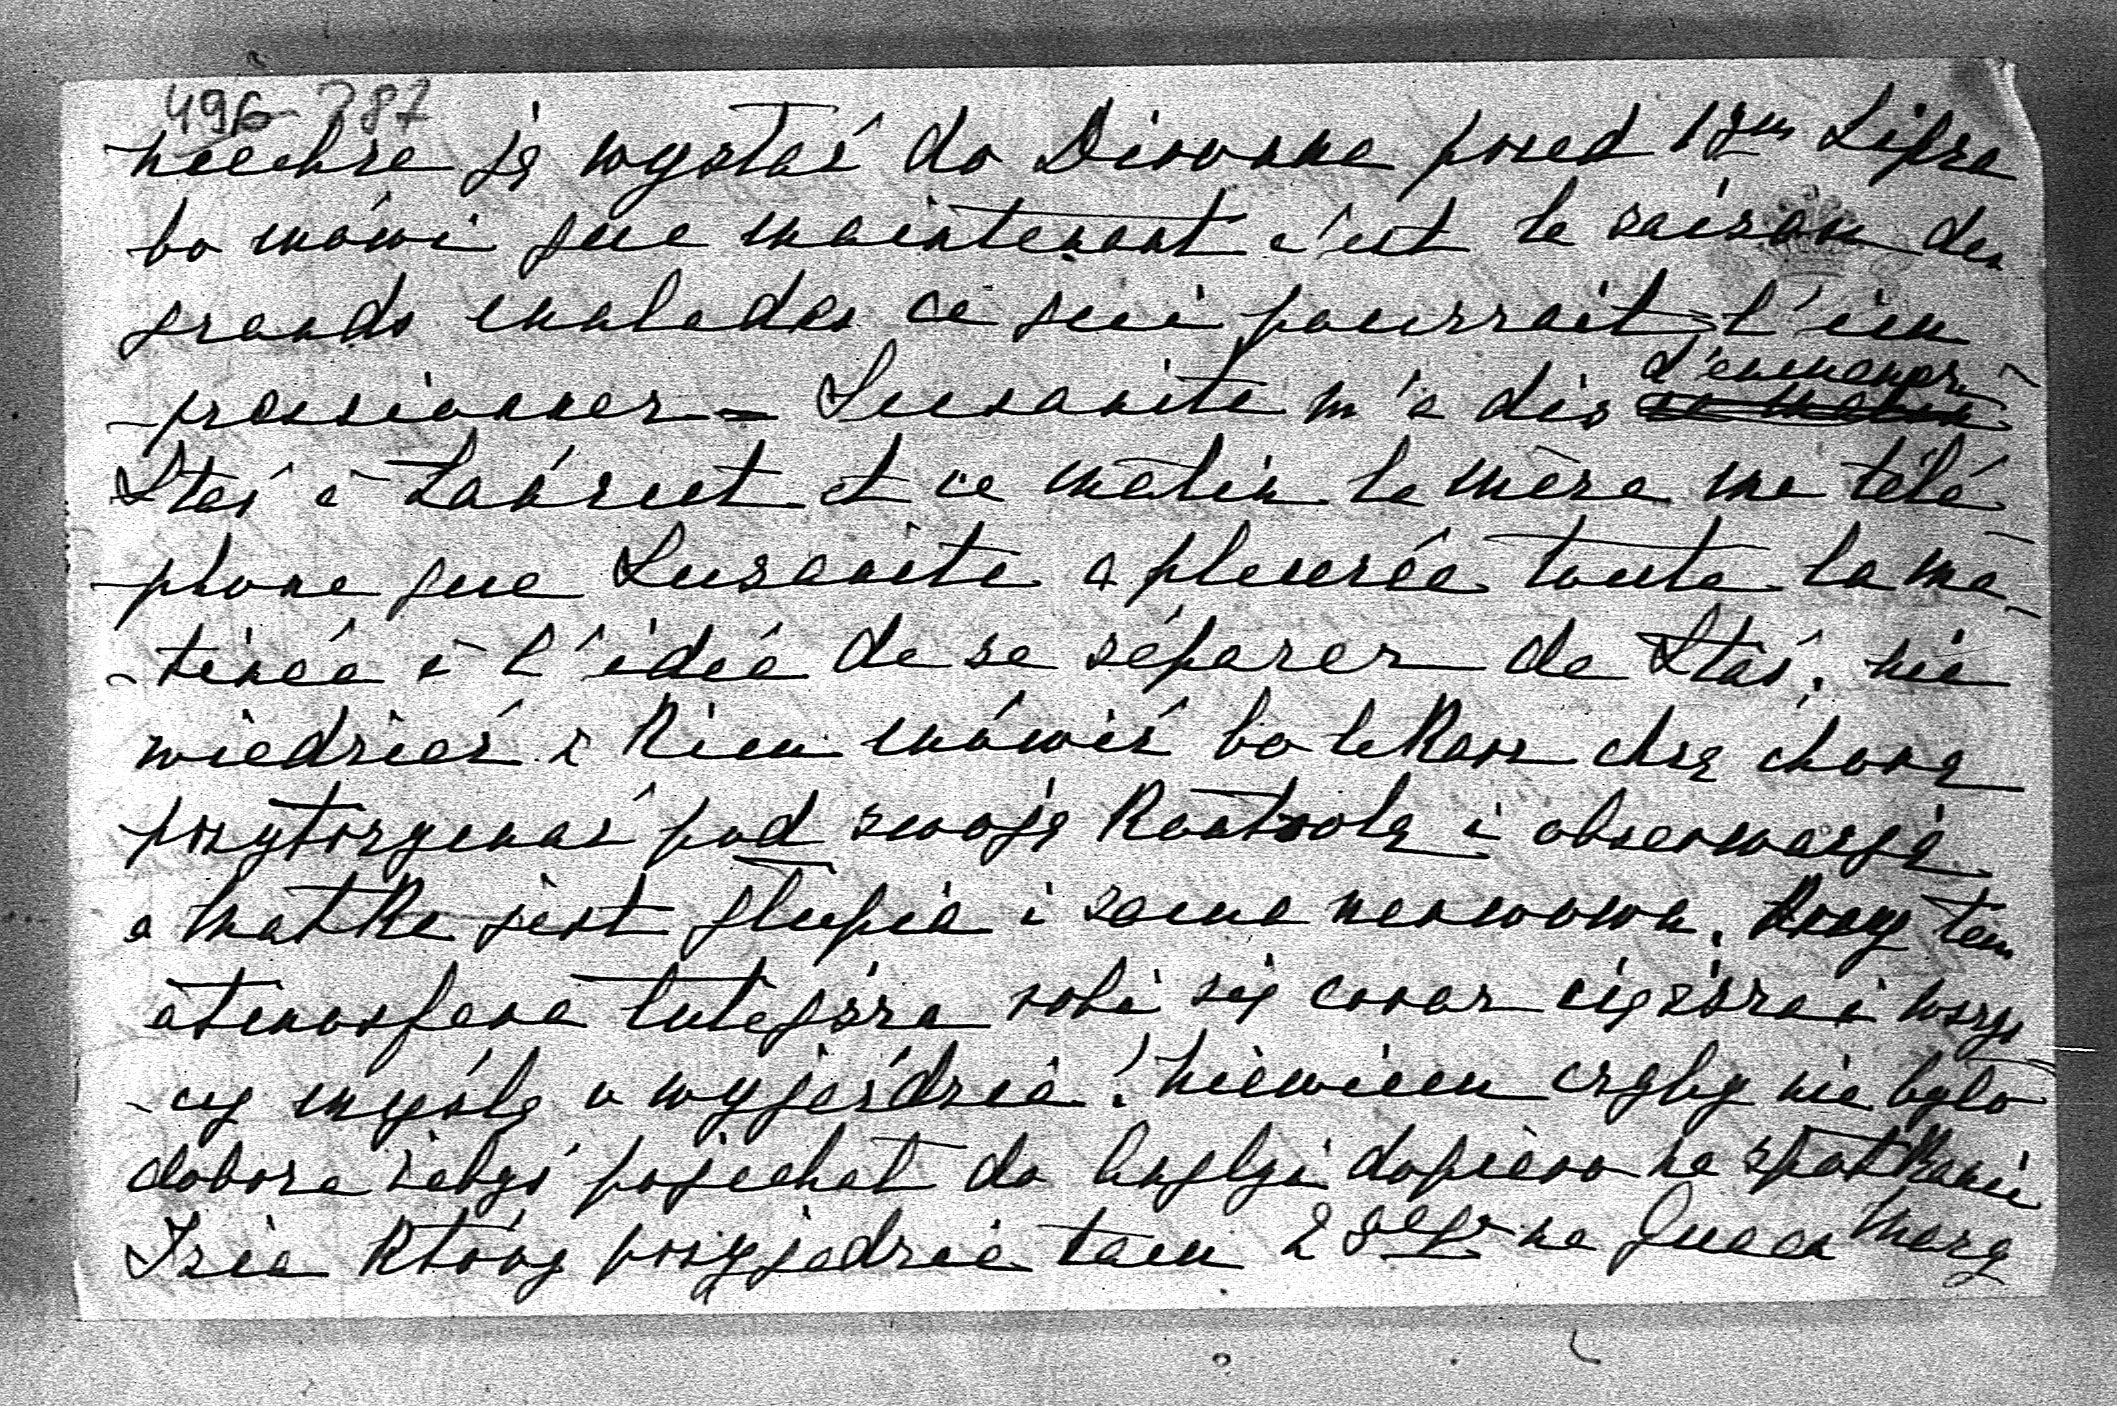 496-787
niechce ją wysłać do Divonne przed 1szym Lipca
bo mówi que maintenant c'est la saison des
grands malades ce qui pourrait l'im
-pressionner - Susanite m'a dis d'emmener
Staś à Łańcut et ce matin la mère me télé
-phone que Susanite a pleurée toute la ma-
-tinée à l'idée de se séparer de Staś, nie
wiedzieć z kim mówić bo lekarz chce chorą
przytrzymać pod swoją kontrolą i obserwacją
a matka jest głupia i sama nerwowa. Przy tem
atmosfera tutejsza robi się coraz cięższa i wszys
-cy myślą o wyjeździe! niewiem czyby nie było
dobrze żebyś pojechał do Anglji dopiero na spotkanie
Izia który przyjedzie tam 28go na Queen Mary